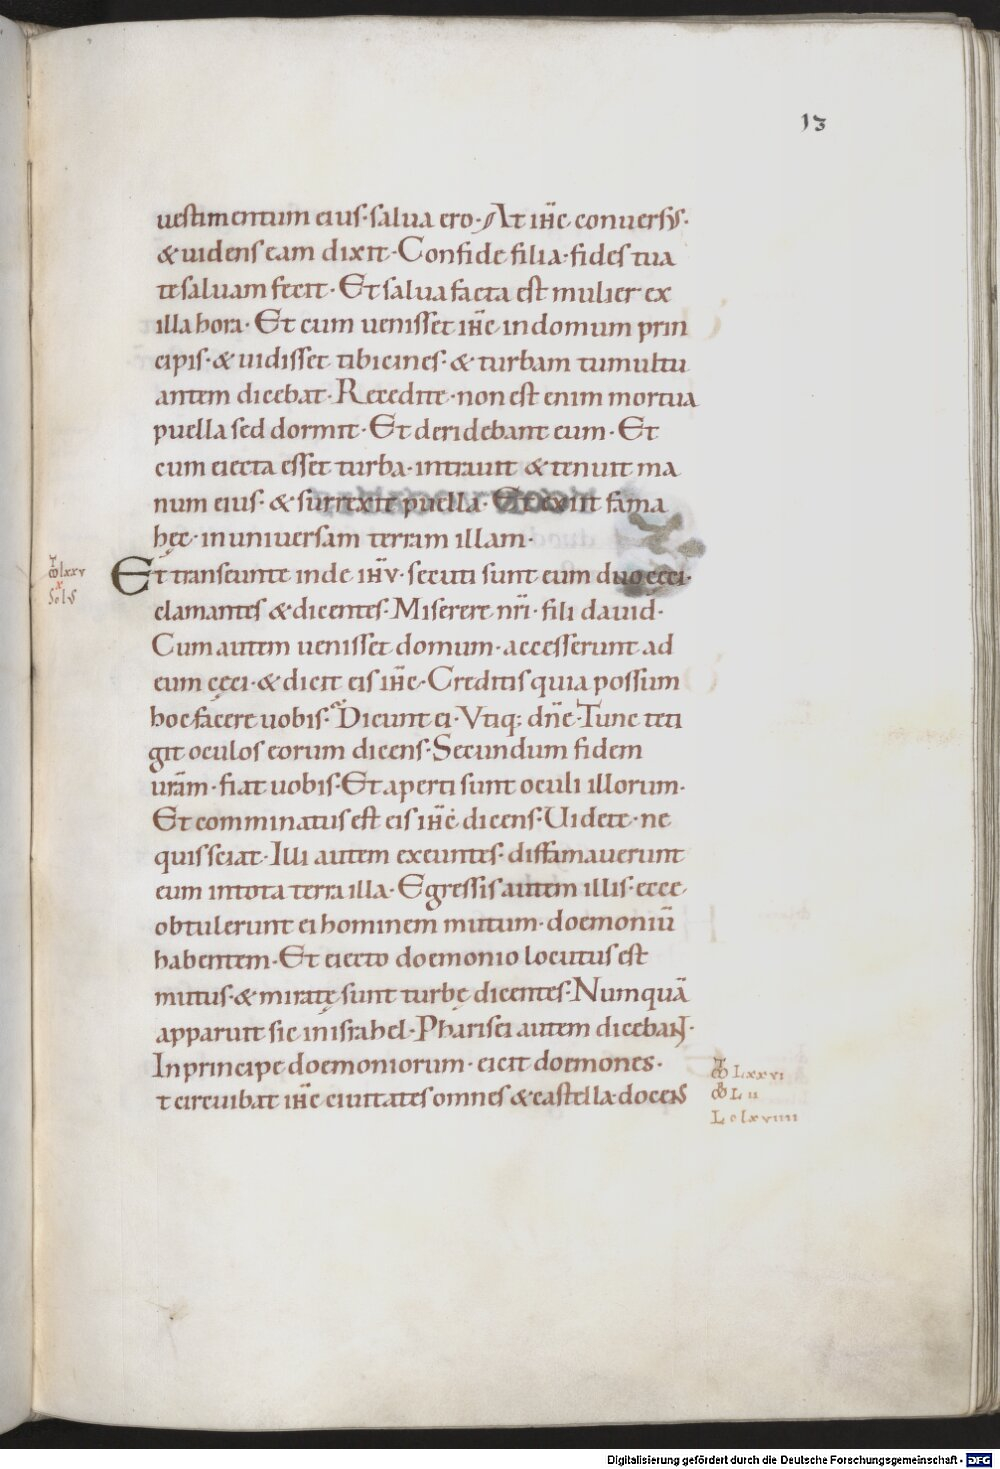 13
uestimentum eius·salua ero·At ih̅c conuersus·
&uidens eam dixit·Confide filia·fides tua
te saluam fecit·Et salua facta est mulier ex
illa hora·Et cum uenisset ih̅c in domum prin
cipis·& uidisset tibicines·& turbam tumultu
antem dicebat·Recedite·non est enim mortua
puella sed dormit·Et deridebant eum·Et
cum eiecta esset turba·intrauit & tenuit ma
num eius·& surrexit puella·Et exiit fama
hęc·in uniuersam terram illam·
lxxv
x
Et transeunte inde ih̅u·secuti sunt eum duo cęci·
clamantes & dicentes·Miserere nr̅i·fili dauid·
Cum autem uenisset domum·accesserunt ad
eum cęci·& dicit eis ih̅c·Creditis quia possum
hoc facere uobis·Dicunt ei·Vtiq; dn̅e·Tunc teti
git oculos eorum dicens·Secundum fidem
ur̅am·fiat uobis·Et aperti sunt oculi illorum·
Et comminatus est eis ih̅c dicens·Uidete·ne
quis sciat·Illi autem exeuntes·diffamauerunt
eum in tota terra illa·Egressis autem illis·ecce
obtulerunt ei hominem mutum·doemoniu̅
habentem·Et eiecto doemonio locutus est
mutus·& miratę sunt turbę dicentes·Numqua̅
apparuit sic in israhel·Pharisei autem dicebant·
In principe doemoniorum·eicit doemones·
t circuibat ih̅c ciuitates omnes & castella·docens
Lxxvi
L ii
L c lxviiii
Digitalisierung gefördert durch die Deutsche Forschungsgemeinschaft - DFG